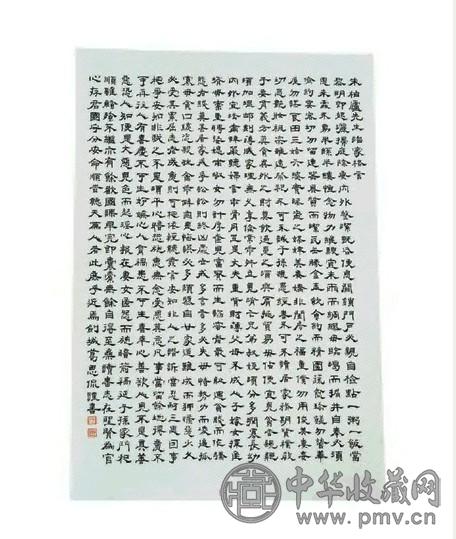 朱柏廬先生治家格言
黎明即起灑掃庭除要內外整潔既昏便息關鎖門戶必親自檢點一粥一飯當
思來處不易半絲半縷恆念物力維艱宜未雨而綢繆毋臨渴而掘井自奉必須
儉約宴客切勿留連器具質而潔瓦缶勝金玉飲食約而精園蔬愈珍饈勿營華
屋勿謀良田三姑六婆實淫盜之媒婢美妾嬌非閨房之福童僕勿用俊美妻妾
切忌艷妝祖宗雖遠祭祀不可不誠子孫雖愚經書不可不讀居身務期質樸教
子要有義方莫貪意外之財莫飲過量之酒與肩挑貿易毋佔便宜見貧苦親鄰
須加溫卹刻薄成家理無久享倫常乖舛立見消亡兄弟叔侄須分多潤寡長幼
內外宜法肅辭嚴聽婦言乖骨肉豈是丈夫重資財薄父母不成人子嫁女擇佳
婿毋索重聘娶媳求淑女勿計厚奩見富貴而生諂容者最可恥遇貧窮而作驕
態者賤莫甚居家戒爭訟訟則終凶處世戒多言言多必失毋恃勢力而凌逼孤
寡毋貪口腹而恣殺牲禽乖僻自是悔誤必多頹惰自甘家道難成狎暱惡少久
必受其累屈志老成急則可相依輕聽發言安知非人之譖訴當忍耐三思因事
相爭安知非我之不是須平心暗想施惠無念受恩莫忘凡事當留餘地得意不
可再往人有喜慶不可生妒嫉心人有禍患不可生喜幸心善欲人見不是真善
惡恐人知便是大惡見色而起淫心報在妻女匿怨而用暗箭禍延子孫家門和
順雖饔飧不繼亦有餘歡國課早完即囊橐無餘自得至樂讀書志在聖賢為官
心存君國守分安命順時聽天為人若此庶乎近焉 城葛思侃謹書
中华收藏网
www.pmv.cn